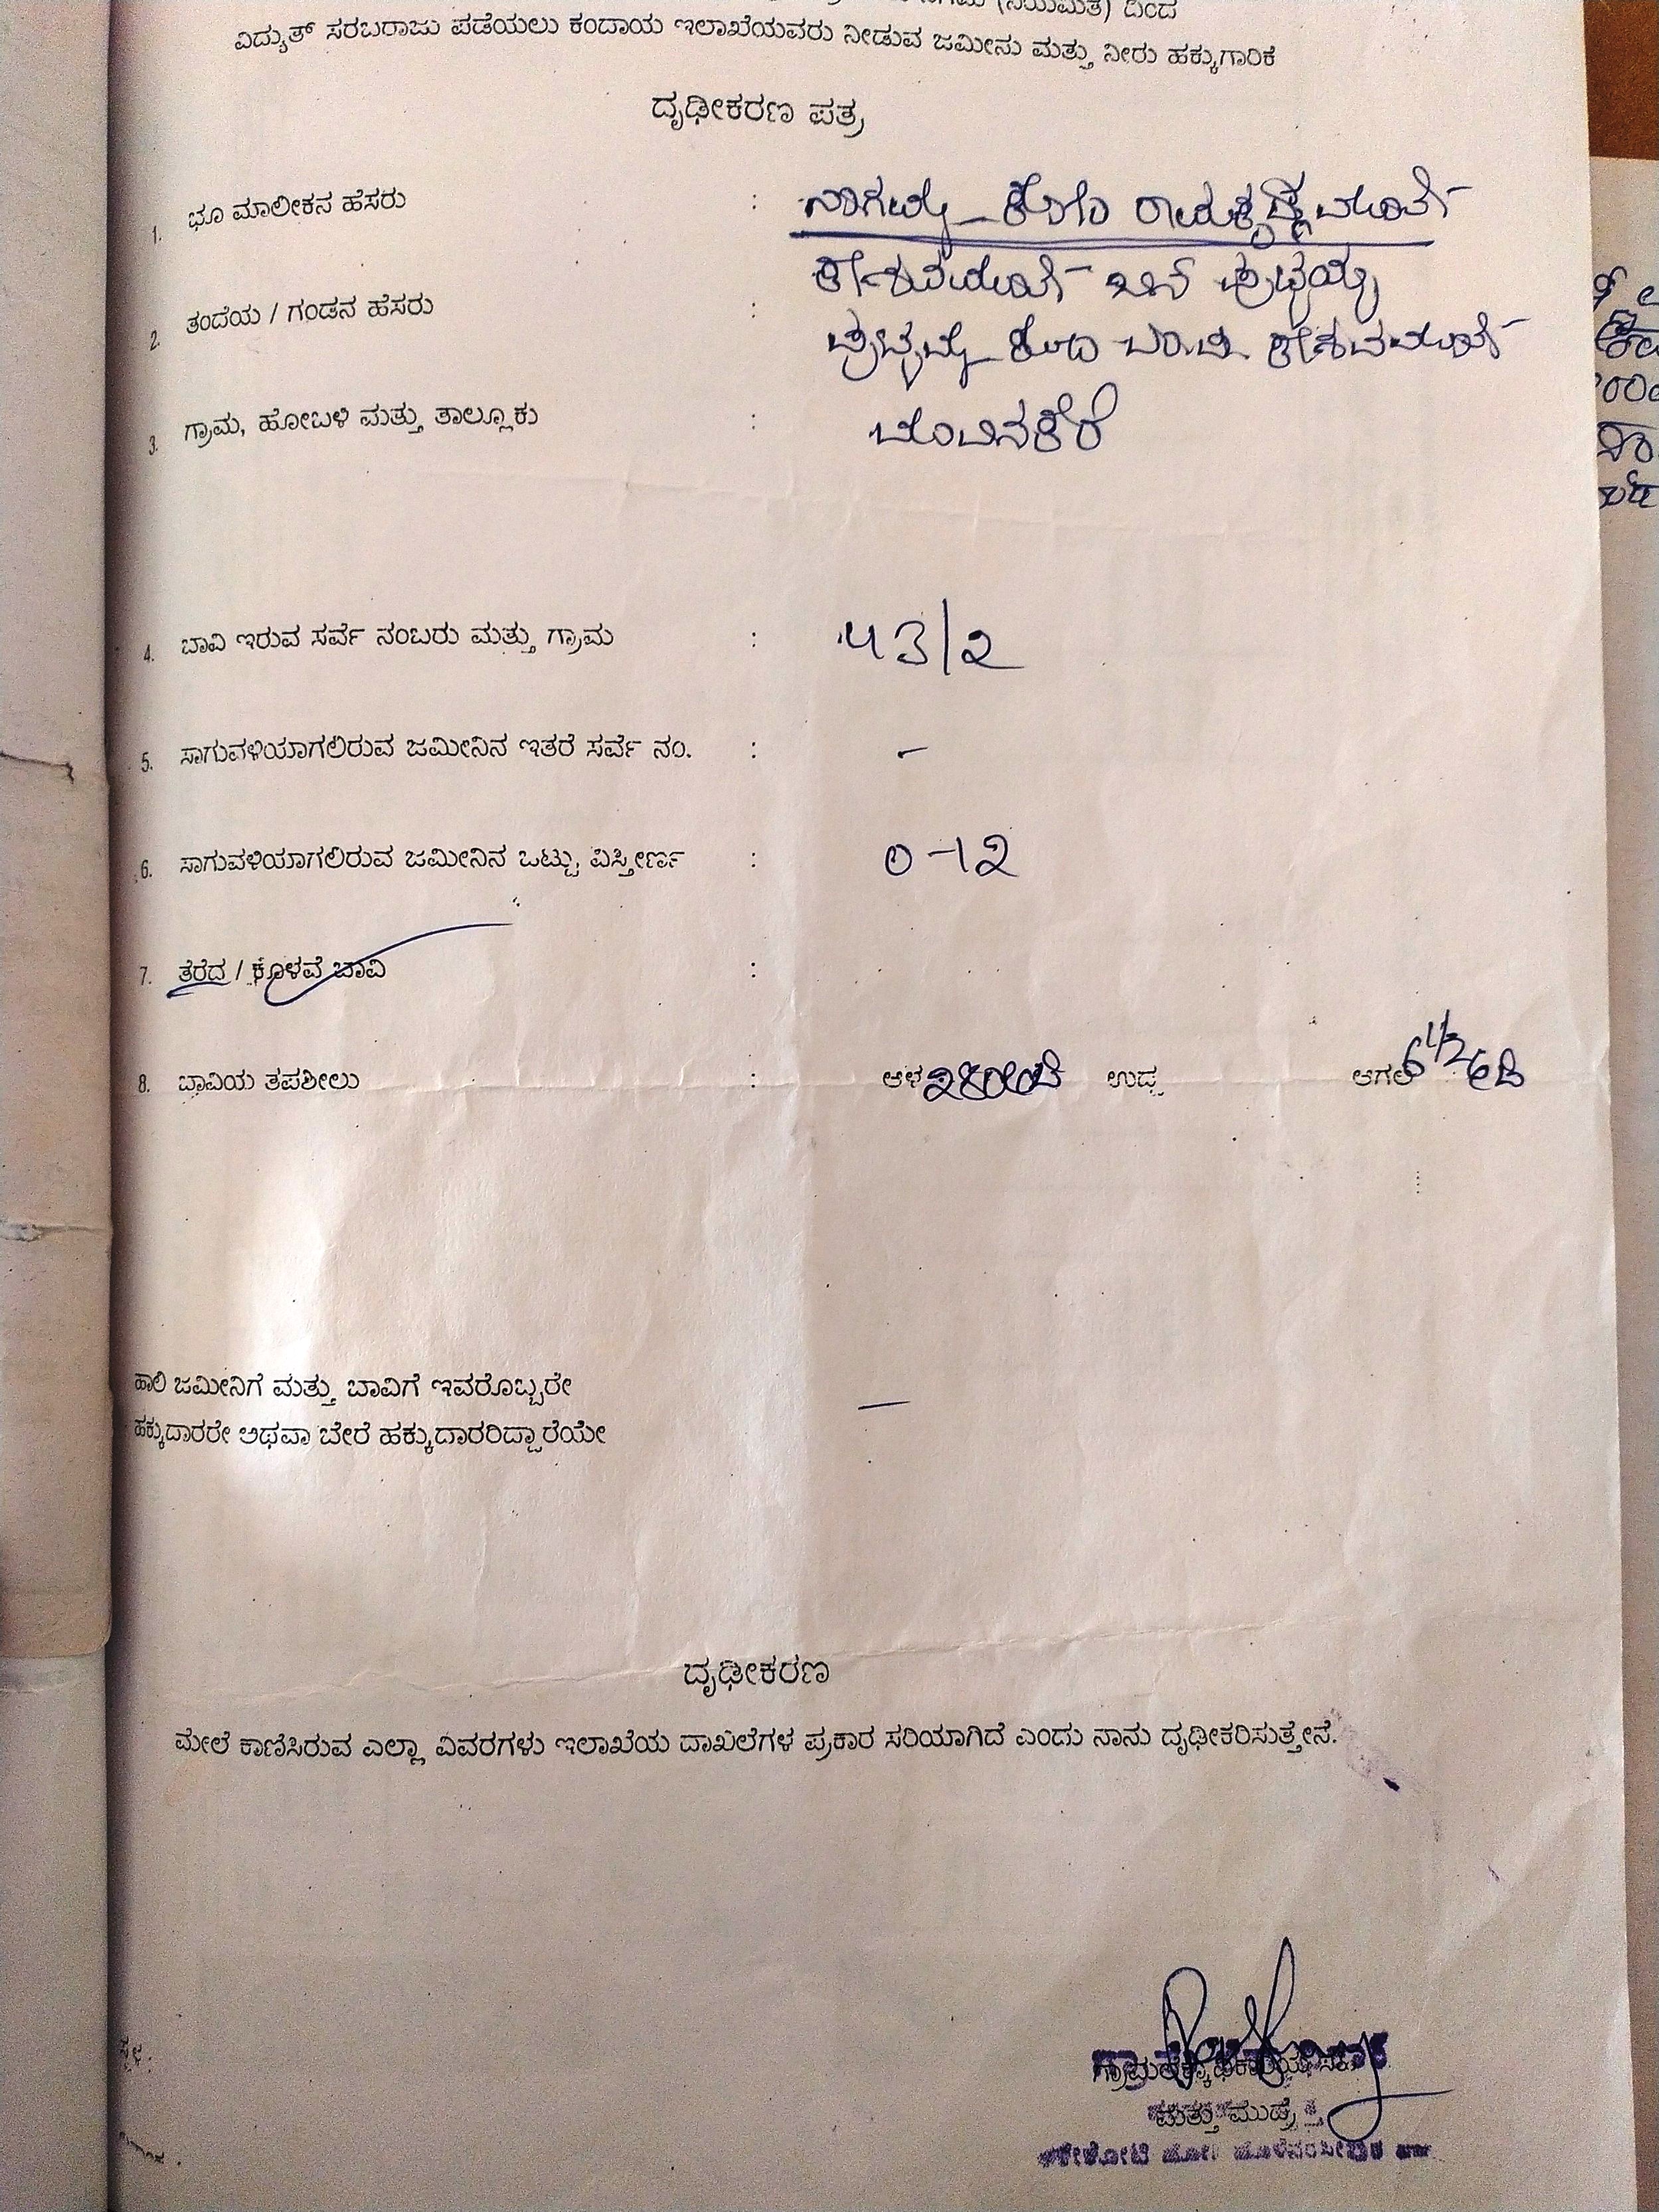 (ನಿಯಮಿತ) ದಿಂದ
ವಿದ್ಯುತ್ ಸರಬರಾಜು ಪಡೆಯಲು ಕಂದಾಯ ಇಲಾಖೆಯವರು ನೀಡುವ ಜಮೀನು ಮತ್ತು ನೀರು ಹಕ್ಕುಗಾರಿಕೆ
ದೃಢೀಕರಣ ಪತ್ರ
1. ಭೂ ಮಾಲೀಕನ ಹೆಸರು : ನಾಗಮ್ಮ ಕೋಂ ರಾಮಕೃಷ್ಣಮೂರ್ತಿ
ಕೇಶವಮೂರ್ತಿ ಬಿನ್ ಪುಟ್ಟಯ್ಯ
2. ತಂದೆಯ / ಗಂಡನ ಹೆಸರು :
ಪುಟ್ಟಮ್ಮ ಕೇಶವಮೂರ್ತಿ
3. ಗ್ರಾಮ, ಹೋಬಳಿ ಮತ್ತು ತಾಲ್ಲೂಕು :
4. ಬಾವಿ ಇರುವ ಸರ್ವೆ ನಂಬರು ಮತ್ತು ಗ್ರಾಮ : 43/2
5. ಸಾಗುವಳಿಯಾಗಲಿರುವ ಜಮೀನಿನ ಇತರೆ ಸರ್ವೆ ನಂ. : -
6. ಸಾಗುವಳಿಯಾಗಲಿರುವ ಜಮೀನಿನ ಒಟ್ಟು ವಿಸ್ತೀರ್ಣ : 0-12
7. ತೆರೆದ / ಕೊಳವೆ ಬಾವಿ :
8. ಬಾವಿಯ ತಪಶೀಲು : ಆಳ ಉದ್ದ ಅಗಲ 6 1/2 ಅಡಿ
ಹಾಲಿ ಜಮೀನಿಗೆ ಮತ್ತು ಬಾವಿಗೆ ಇವರೊಬ್ಬರೇ
ಹಕ್ಕುದಾರರೇ ಅಥವಾ ಬೇರೆ ಹಕ್ಕುದಾರರಿದ್ದಾರೆಯೇ —
ದೃಢೀಕರಣ
ಮೇಲೆ ಕಾಣಿಸಿರುವ ಎಲ್ಲಾ ವಿವರಗಳು ಇಲಾಖೆಯ ದಾಖಲೆಗಳ ಪ್ರಕಾರ ಸರಿಯಾಗಿದೆ ಎಂದು ನಾನು ದೃಢೀಕರಿಸುತ್ತೇನೆ.
ಸ್ಥಳ :
ಮತ್ತು ಮುದ್ರೆ